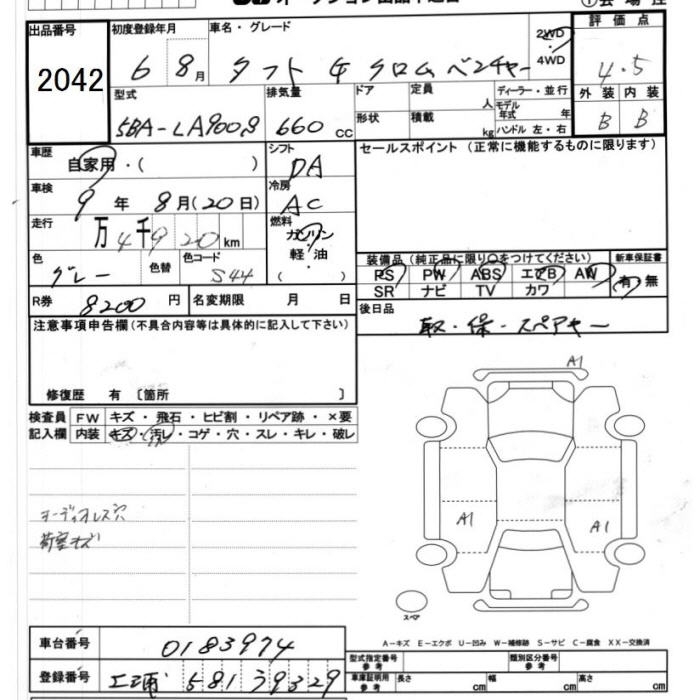 出品番号 2042
初度登録年月 6 8月
車名・グレード タフト G クロムベンチャー
2WD・4WD
評価点 4.5
型式 5BA-LA900S
排気量 660 cc
ドア
形状
定員 人
積載 kg
ディーラー・並行
モデル年式 年
ハンドル 左・右
外装 B
内装 B
車歴 自家用・( )
シフト DA
セールスポイント (正常に機能するものに限ります)
車検 9年 8月(20日)
冷房 AC
走行 万4千920km
燃料 ガソリン
軽・油
( )
色 グレー
色替
色コード S44
装備品(純正品に限り○をつけてください)
新車保証書
PS PW ABS エアB AW 有・無
SR ナビ TV カワ
R券 8200円
名変期限 月 日
後日品 取・保・スペアキー
注意事項申告欄(不具合内容等は具体的に記入して下さい)
修復歴 有 〔箇所 〕
検査員 FW キズ・飛石・ヒビ割・リペア跡・×要
記入欄 内装 キズ・汚レ・コゲ・穴・スレ・キレ・破レ
A1
A1
A1
オーディオレス穴
荷室キズ
スペア
車台番号 0183974
A-キズ E-エクボ U-凹み W-補修跡 S-サビ C-腐食 XX-交換済
型式指定番号 参考
類別区分番号 参考
登録番号 581 39329
車庫証明用 参考 長さ cm 幅 cm 高さ cm